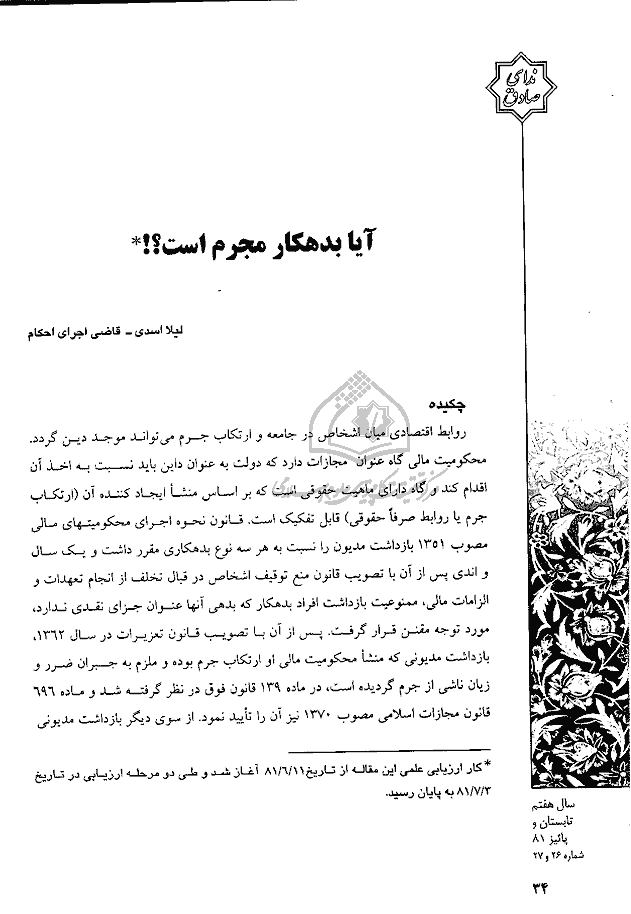 ندای
صادق
آیا بدهکار مجرم است؟!*
لیلا اسدی ـ قاضی اجرای احکام
چکیده
روابط اقتصادی میان اشخاص در جامعه و ارتکاب جرم می‌تواند موجد دین گردد.
محکومیت مالی گاه عنوان مجازات دارد که دولت به عنوان داین باید نسبت به اخذ آن
اقدام کند و گاه دارای ماهیت حقوقی است که بر اساس منشأ ایجاد کننده آن (ارتکاب
جرم یا روابط صرفاً حقوقی) قابل تفکیک است. قانون نحوه اجرای محکومیتهای مالی
مصوب ۱۳۵۱ بازداشت مدیون را نسبت به هر سه نوع بدهکاری مقرر داشت و یک سال
و اندی پس از آن با تصویب قانون منع توقیف اشخاص در قبال تخلف از انجام تعهدات و
الزامات مالی، ممنوعیت بازداشت افراد بدهکار که بدهی آنها عنوان جزای نقدی ندارد،
مورد توجه مقنن قرار گرفت. پس از آن با تصویب قانون تعزیرات در سال ۱۳۶۲،
بازداشت مدیونی که منشأ محکومیت مالی او ارتکاب جرم بوده و ملزم به جبران ضرر و
زیان ناشی از جرم گردیده است، در ماده ۱۳۹ قانون فوق در نظر گرفته شد و ماده ۶۹۶
قانون مجازات اسلامی مصوب ۱۳۷۰ نیز آن را تأیید نمود. از سوی دیگر بازداشت مدیونی
* کار ارزیابی علمی این مقاله از تاریخ ۸۱/۶/۱۱ آغاز شد و طی دو مرحله ارزیابی در تاریخ
۸۱/۷/۳ به پایان رسید.
سال هفتم
تابستان و
پائیز ۸۱
شماره ۲۶ و ۲۷
۳۴